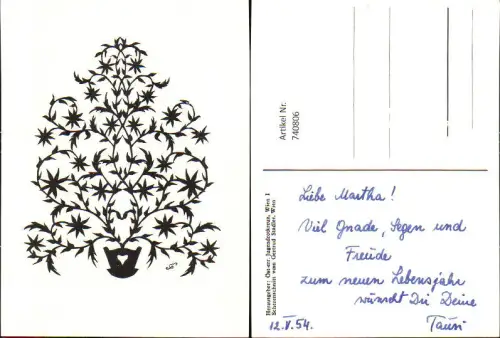 Artikel Nr.
740806
Herausgeber: Österr. Jugendrotkreuz, Wien I
Scherenschnitt von Gertrud Studler, Wien
Liebe Martha!
Viel Gnade, Segen und
Freude
zum neuen Lebensjahr
wünscht Dir Deine
12.V.54.